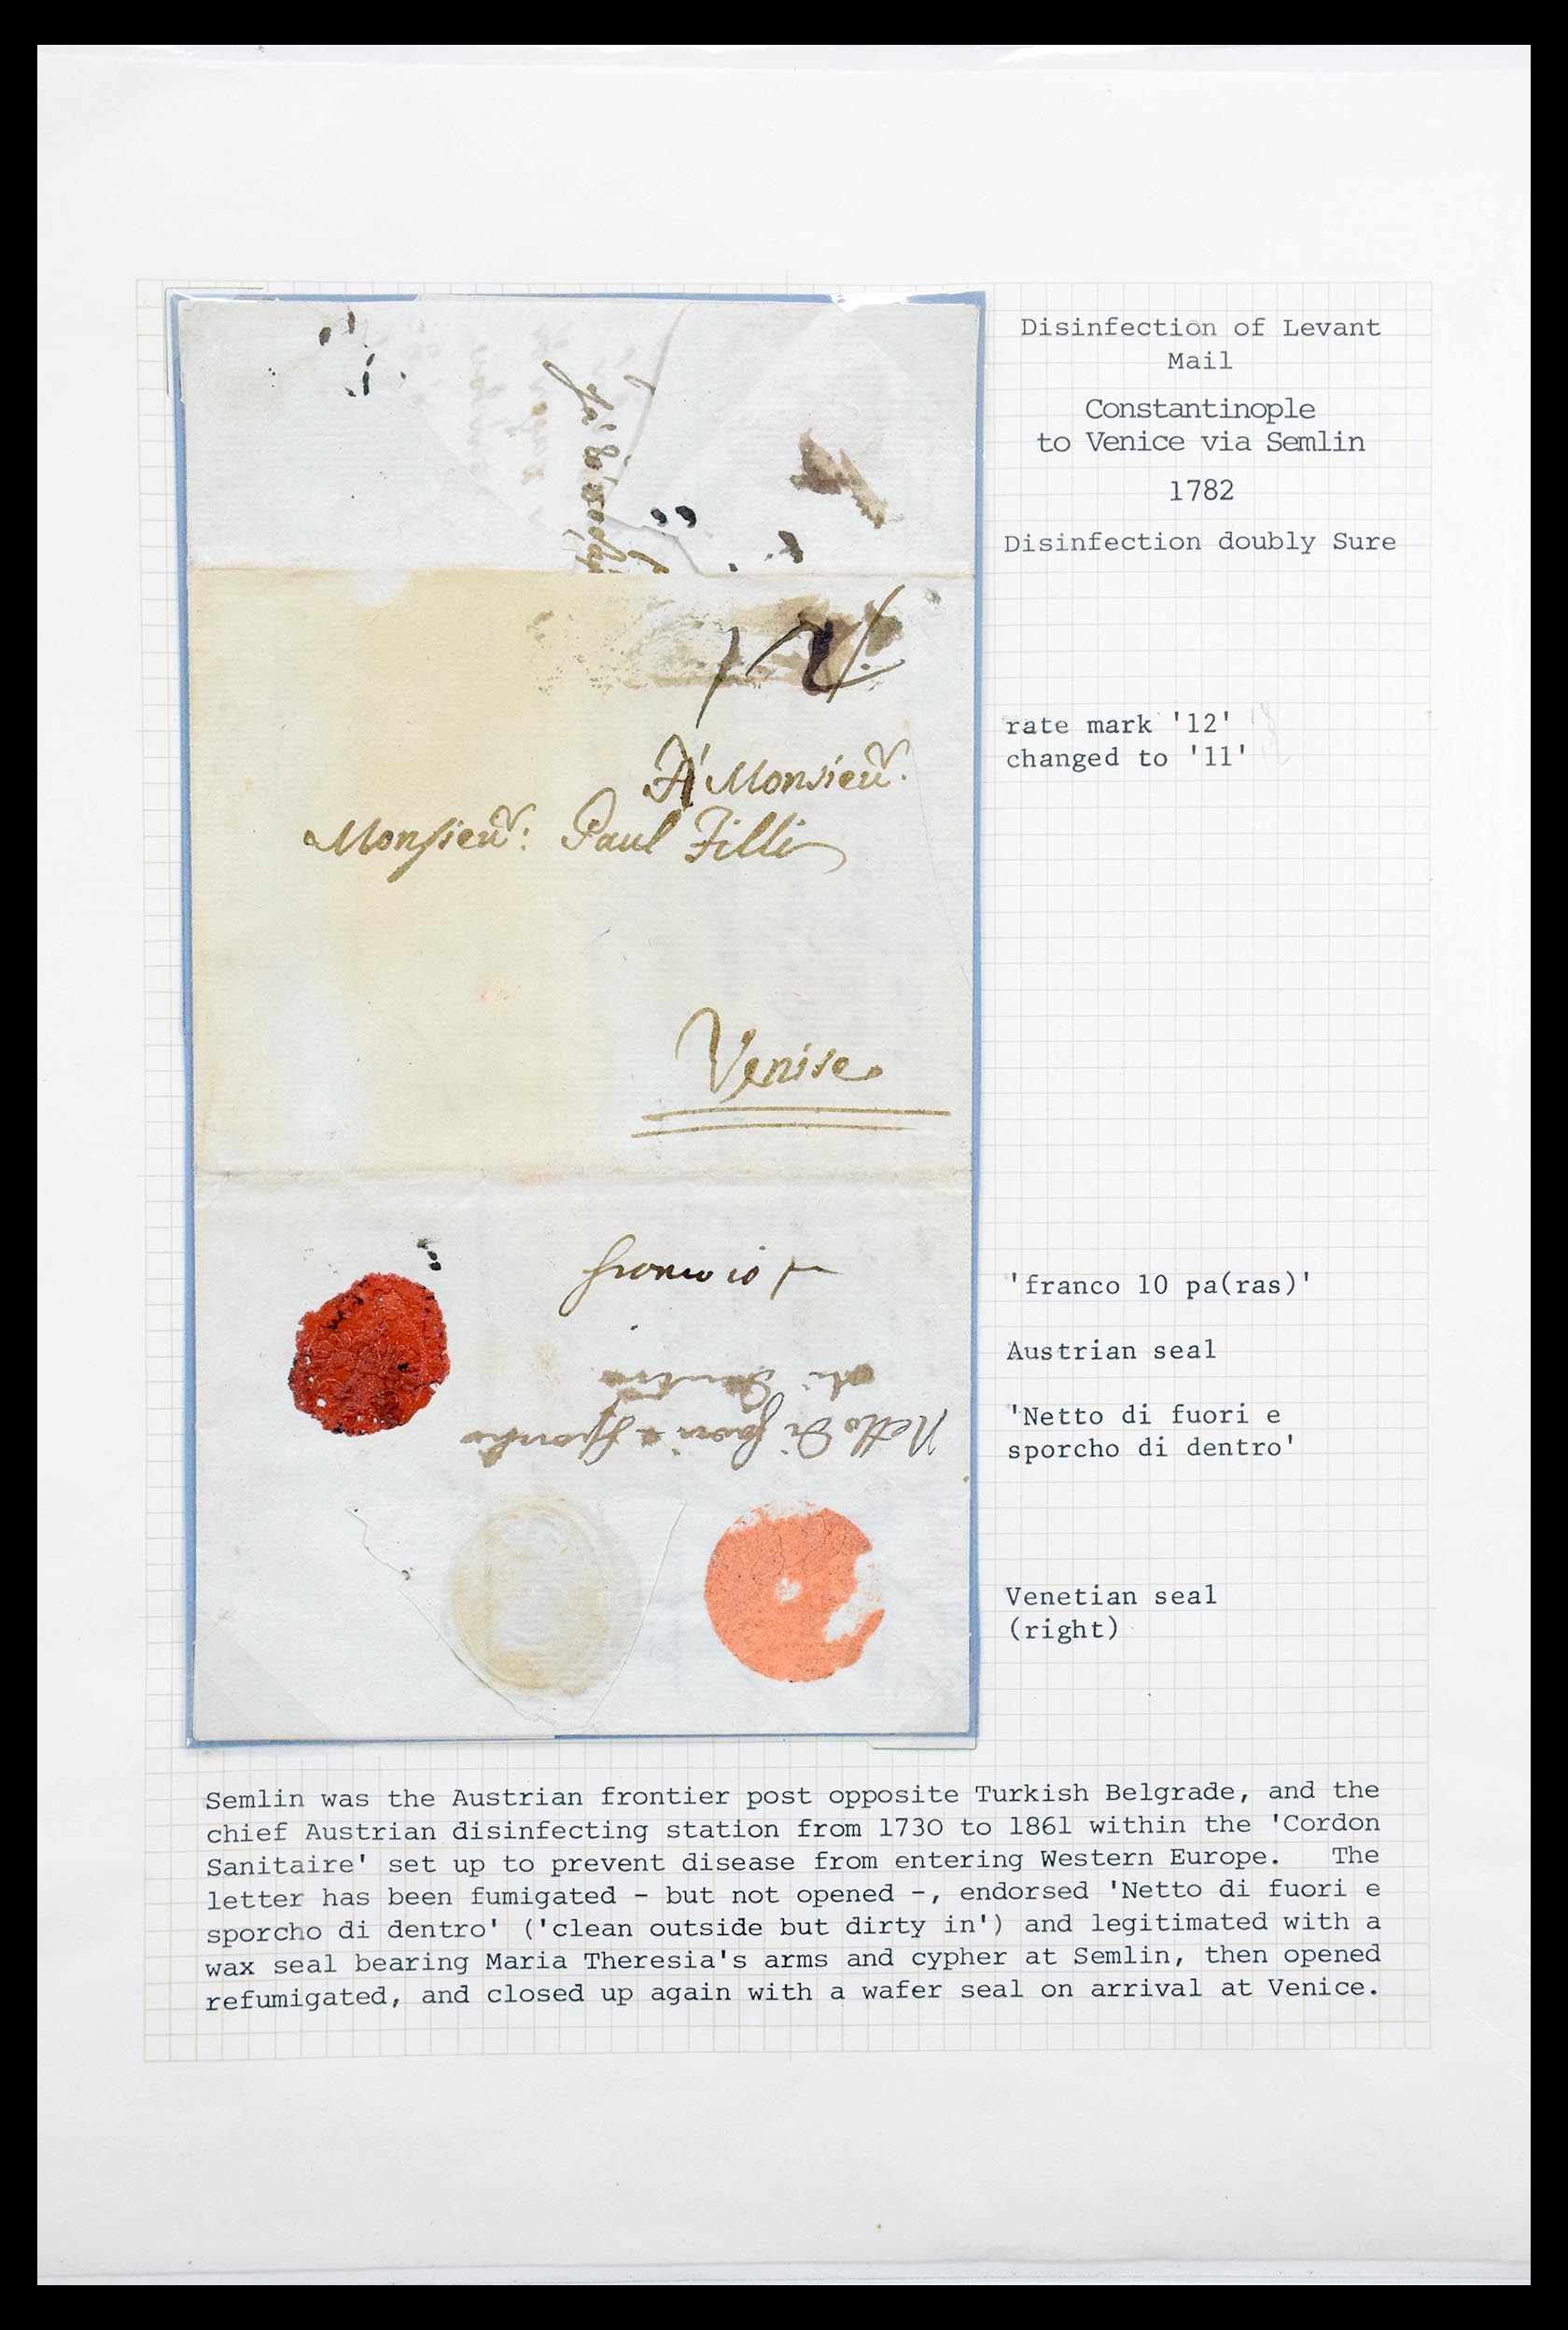 Disinfection of Levant
Mail
Constantinople
to Venice via Semlin
1782
Disinfection doubly Sure
rate mark '12'
changed to '11'
A Monsieur.
Monsieur: Paul Filli
Venise
franco 10
Netto Di fuori e Sporcho
di Dentro
'franco 10 pa(ras)'
Austrian seal
'Netto di fuori e
sporcho di dentro'
Venetian seal
(right)
Semlin was the Austrian frontier post opposite Turkish Belgrade, and the
chief Austrian disinfecting station from 1730 to 1861 within the 'Cordon
Sanitaire' set up to prevent disease from entering Western Europe. The
letter has been fumigated - but not opened -, endorsed 'Netto di fuori e
sporcho di dentro' ('clean outside but dirty in') and legitimated with a
wax seal bearing Maria Theresia's arms and cypher at Semlin, then opened
refumigated, and closed up again with a wafer seal on arrival at Venice.